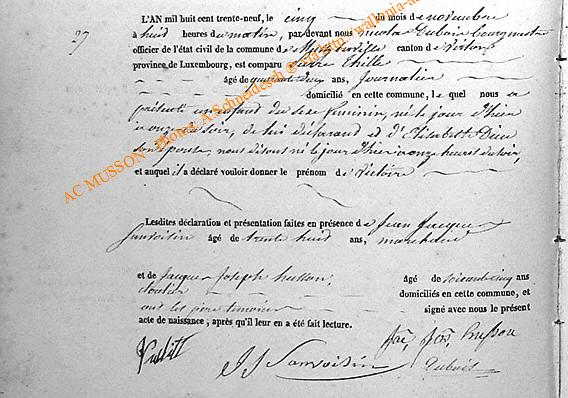 27
L'AN mil huit cent trente-neuf, le cinq du mois de novembre
à huit heures du matin, par-devant nous Nicolas Dubois Bourgmestre
officier de l'état civil de la commune de canton de Virton
province de Luxembourg, est comparu Pierre
âgé de ans, journalier
domicilié en cette commune, lequel nous a
présenté un enfant du sexe féminin, né le jour d'hier
à onze du soir, de lui déclarant et d'Elisabeth
son épouse, nous disons né le jour d'hier à onze heures du soir,
et auquel il a déclaré vouloir donner le prénom de Victoire
Lesdites déclaration et présentation faites en présence de Jean Jacques
Sanvoisin âgé de trente huit ans, marchand
et de Jacques Joseph husson, âgé de soixante cinq ans
cloutier domiciliés en cette commune, et
ont les père temoins signé avec nous le présent
acte de naissance, après qu'il leur en a été fait lecture.
J J Sanvoisin
jac, jos, husson
Dubois
AC MUSSON - Photos A Schneidesch @ via http://wallonia-a